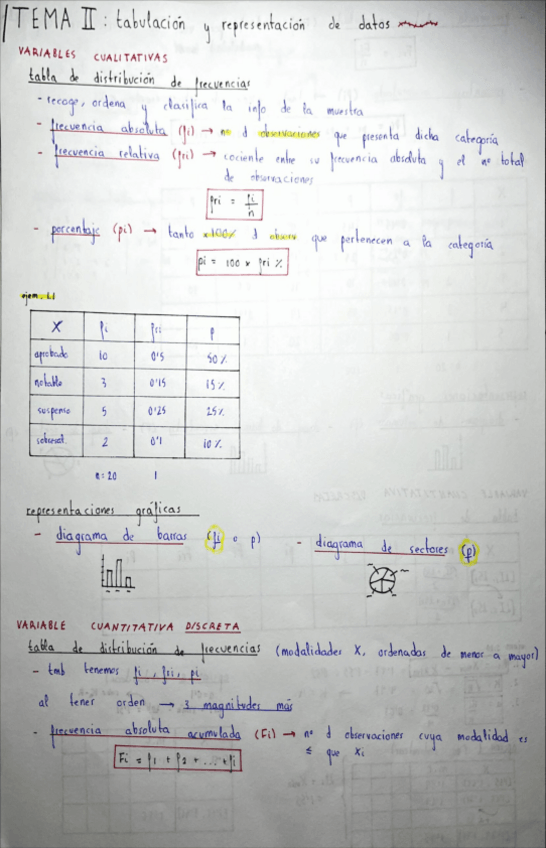 TEMA II: tabulación y representación de datos
VARIABLES CUALITATIVAS
tabla de distribución de frecuencias
- recoge, ordena y clasifica la info de la muestra
- frecuencia absoluta (fi) → nº d observaciones que presenta dicha categoría
- frecuencia relativa (fri) → cociente entre su frecuencia absoluta y el nº total
de observaciones
fri = fi / n
- porcentaje (pi) → tanto x100% d observ que pertenecen a la categoría
pi = 100 x fri %
ejem. 1.1
X fi fri p
aprobado 10 0'5 50%
notable 3 0'15 15%
suspenso 5 0'25 25%
sobresal. 2 0'1 10%
n=20 1
representaciones gráficas
- diagrama de barras (fi o p) - diagrama de sectores (p)
VARIABLE CUANTITATIVA DISCRETA
tabla de distribución de frecuencias (modalidades X, ordenadas de menor a mayor)
- tmb tenemos fi, fri, pi
al tener orden → 3 magnitudes más
- frecuencia absoluta acumulada (Fi) → nº d observaciones cuya modalidad es
≤ que xi
Fi = f1 + f2 + ... + fi